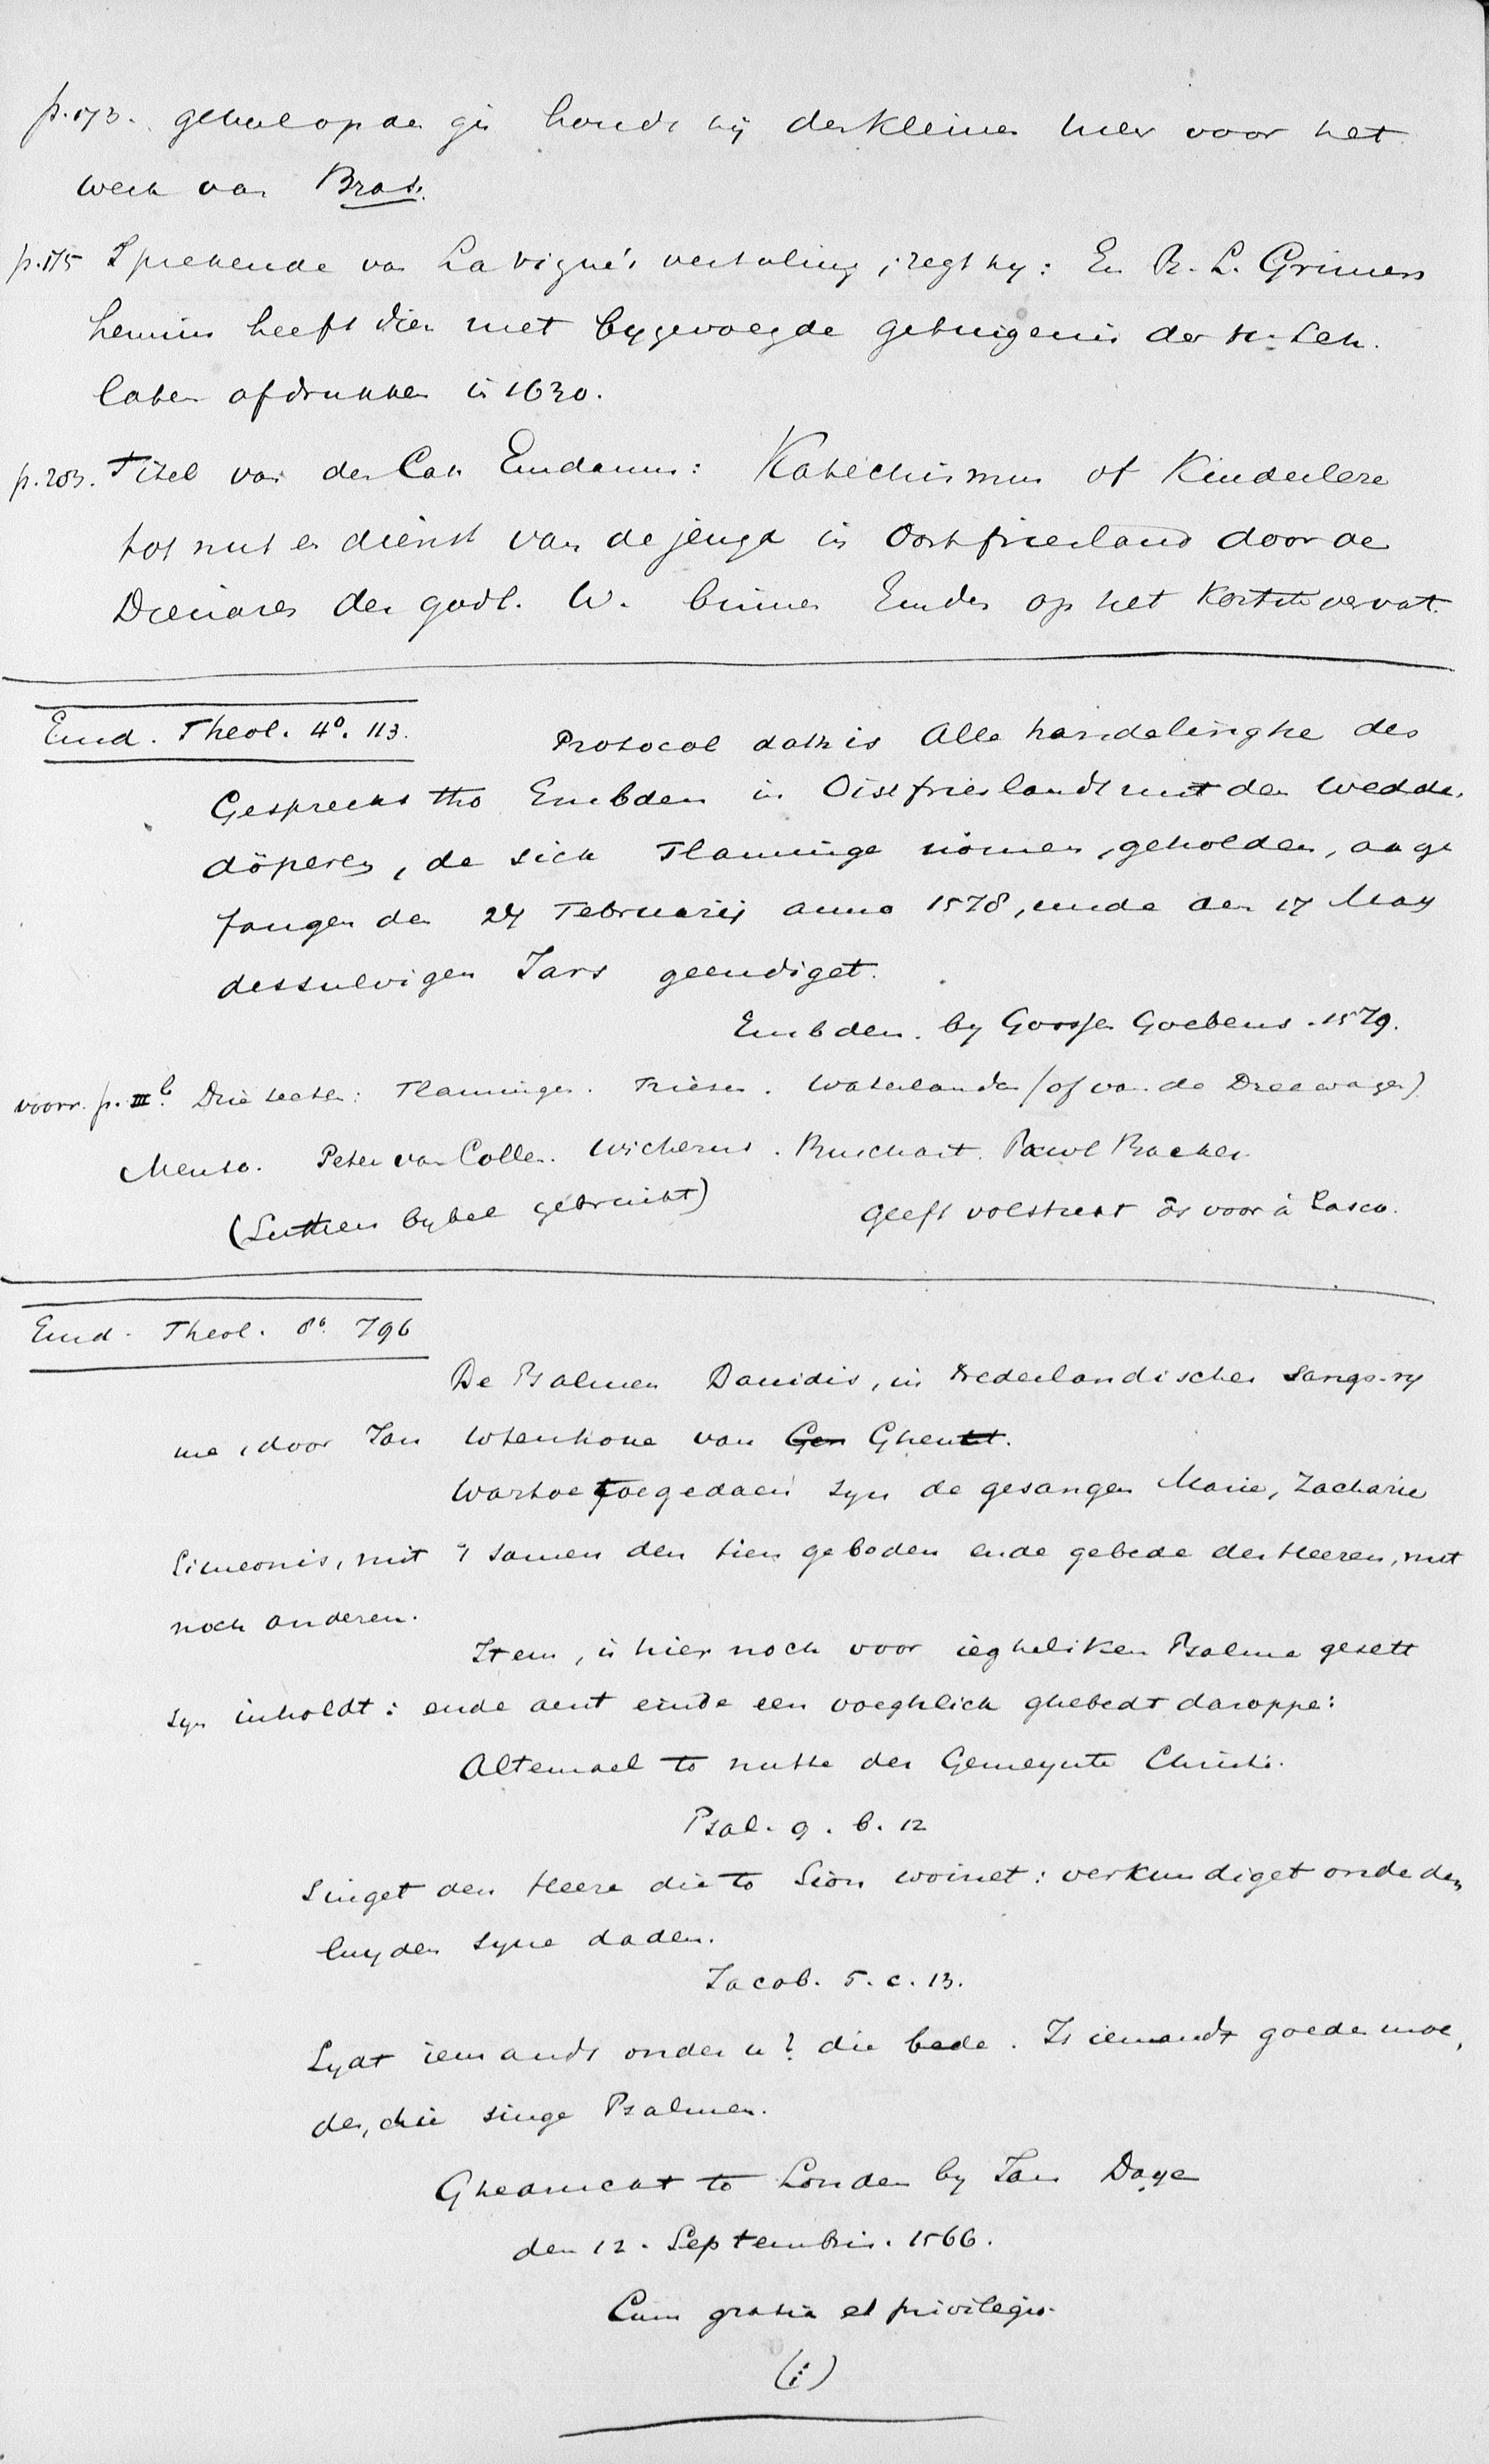 p. 173. geheel op den gis houdt hij den kleinen hier voor het
werk van Brast.
p. 175 Sprekende van Lavigne's vertaling, zegt hy: En R. L. Grimers
hemius heeft dien met bygevoegde getuigenis der H. Sch.
laten afdrukken in 1630.
p. 203. Titel van den Cat. Emdanus: Katechismus of Kinderlere
tot nut en dienst van de jeugd in Oostfriesland door de
Dienares des godl. W. binnen Emden op het Kortste vervat.
Emd. Theol. 4º. 113.
Protocol dath is Alle handelinghe des
Gesprecks tho Embden in Oistfrieslandt mit den Wedde,
döperen, de sick Flaminge nömen, geholden, ange
fangen den 27 Februarij anno 1578, unde den 17 May
dessulvigen Jars geendiget.
Embden. by Goossen Goebens. 1579.
voorr. p. III b. Drie secten: Flamingen. Friesen. Waterlander (of van de Dreewagen)
Menso. Peter van Collen. Wicherus. Buschart. Pawl Backer
(Luthers bybel gebruikt) geeft volstrekt òs voor à Lasco.
Emd. Theol. 8º. 796
De Psalmen Dauidis, in Nederlandischer sangs-ry
me, door Jan Wtenhoue van <s>Gen</s> Ghentt.
Wartoe toegedaen syn de gesangen Marie, Zacharie
Simeonis, mit 't samen den tien geboden ende gebede des Heeren, mit
noch anderen.
Item, is hier noch voor iegheliken Psalme gesett
syn inholdt: ende aent einde een voeghlick ghebedt daroppe:
Altemael to nutte der Gemeynte Christi.
Psal. 9. b. 12
Singet den Heere die to Sion woinet: verkundiget onde den
luyden syne daden.
Jacob. 5. c. 13.
Lydt iemandt onder u? die bede. Is iemandt goedes moe,
des, die singe Psalmen.
Ghedruckt to Londen by Jan Daye
den 12. Septembris. 1566.
Cum gratia et privilegio.
(i)